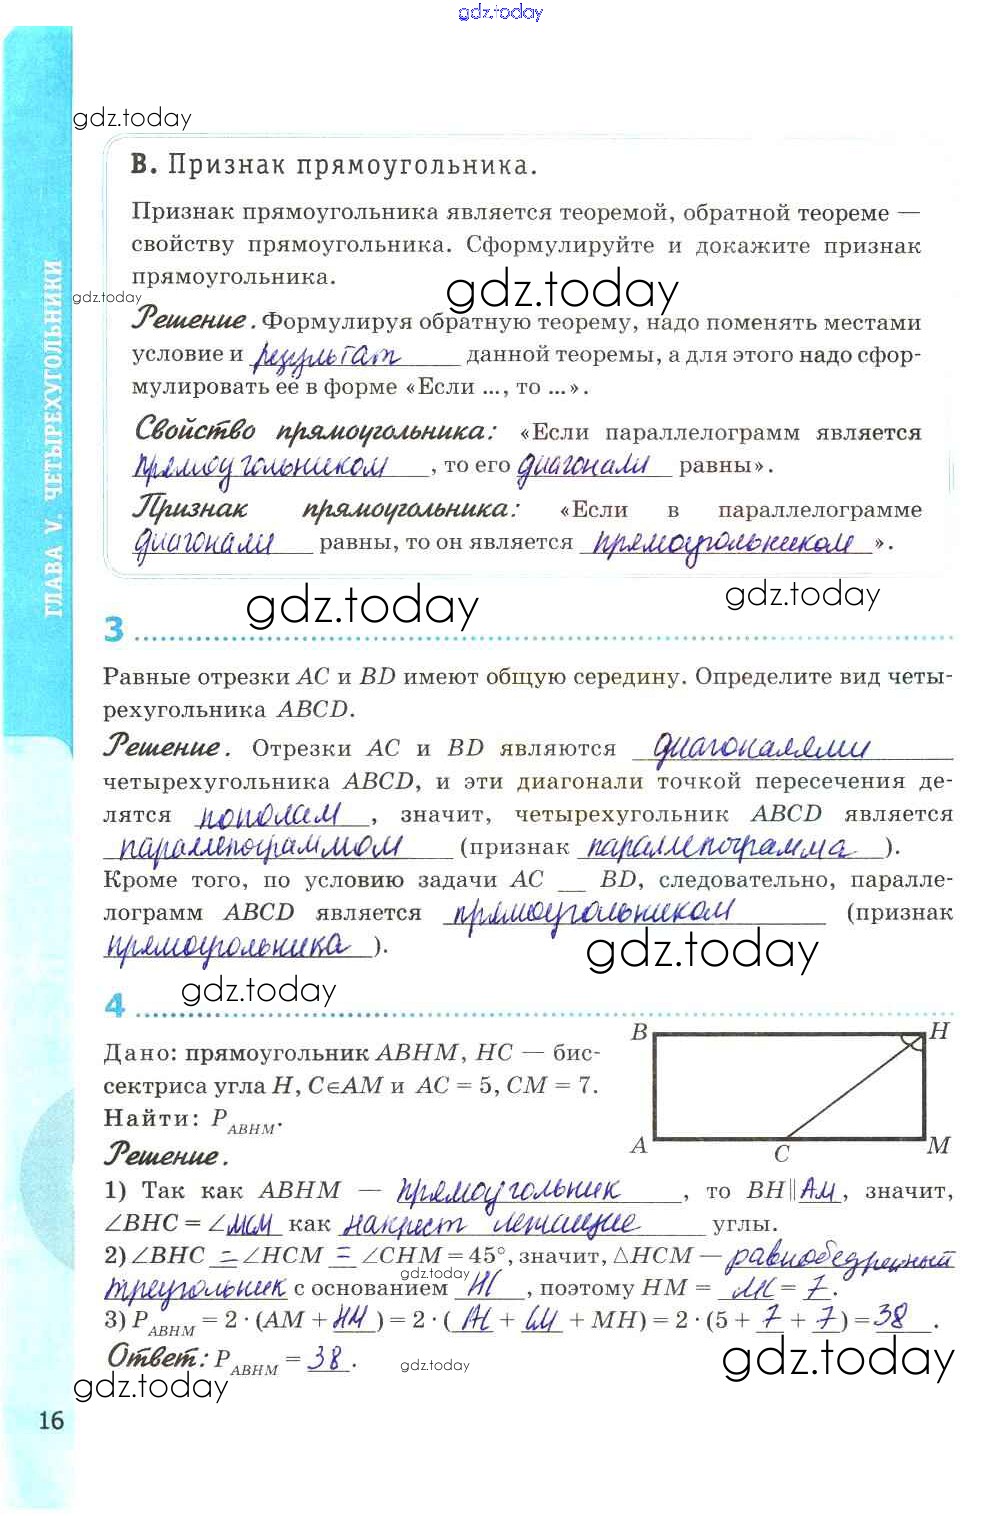 gdz.today
gdz.today
В. Признак прямоугольника.
Признак прямоугольника является теоремой, обратной теореме —
свойству прямоугольника. Сформулируйте и докажите признак
прямоугольника.
gdz.today
gdz.today
Решение. Формулируя обратную теорему, надо поменять местами
условие и результат данной теоремы, а для этого надо сфор-
мулировать её в форме «Если ..., то ...».
Свойство прямоугольника: «Если параллелограмм является
прямоугольником, то его диагонали равны».
Признак прямоугольника: «Если в параллелограмме
диагонали равны, то он является прямоугольником».
ГЛАВА V. ЧЕТЫРЕХУГОЛЬНИКИ
gdz.today
gdz.today
3
Равные отрезки AC и BD имеют общую середину. Определите вид четы-
рехугольника ABCD.
Решение. Отрезки AC и BD являются диагоналями
четырехугольника ABCD, и эти диагонали точкой пересечения де-
лятся пополам, значит, четырехугольник ABCD является
параллелограммом (признак параллелограмма).
Кроме того, по условию задачи AC __ BD, следовательно, паралле-
лограмм ABCD является прямоугольником (признак
прямоугольника).
gdz.today
gdz.today
4
Дано: прямоугольник ABHM, HC — бис-
сектриса угла H, C∈AM и AC = 5, CM = 7.
Найти: P_ABHM.
B H
A C M
Решение.
1) Так как ABHM — прямоугольник, то BH∥AM, значит,
∠BHC = ∠MCM как накрест лежащие углы.
2) ∠BHC = ∠HCM = ∠CHM = 45°, значит, △HCM — равнобедренный
треугольник с основанием HC, поэтому HM = MC = 7.
gdz.today
3) P_ABHM = 2 · (AM + HM) = 2 · (AC + CM + MH) = 2 · (5 + 7 + 7) = 38.
Ответ: P_ABHM = 38.
gdz.today
gdz.today
gdz.today
16